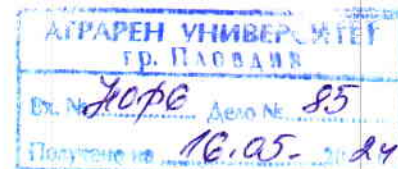 АГРАРЕН УНИВЕРСИТЕТ
гр. ПЛОВДИВ
Вх. № НОРБ Дело № 85
Получено на 16.05. 2024